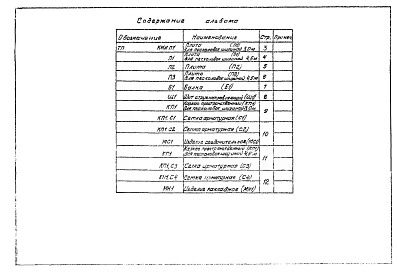 Содержание альбома
Обозначение Наименование Стр. Примеч
ТП КЖИ.П1 Плита (П1) для пешеходов шириной 3,0 м 3
П1 Плита для пешеходов шириной 4,5 м 4
П2 Плита (П2) 5
П3 Плита (П3) для пешеходов шириной 4,5 м 6
Б1 Балка (Б1) 7
Щ1 Щит (Щ1) 8
КП1 Каркас пространственный (КП1) для пешеходов шириной 3,0 м 9
КП1.С1 Сетка арматурная (С1)
КП1.С2 Сетка арматурная (С2) 10
МС1 Изделие соединительное (МС1)
КП1 Каркас пространственный (КП1) для пешеходов шириной 4,5 м 11
КП1.С3 Сетка арматурная (С3)
КП1.С4 Сетка арматурная (С4) 12
МН1 Изделие закладное (МН1)